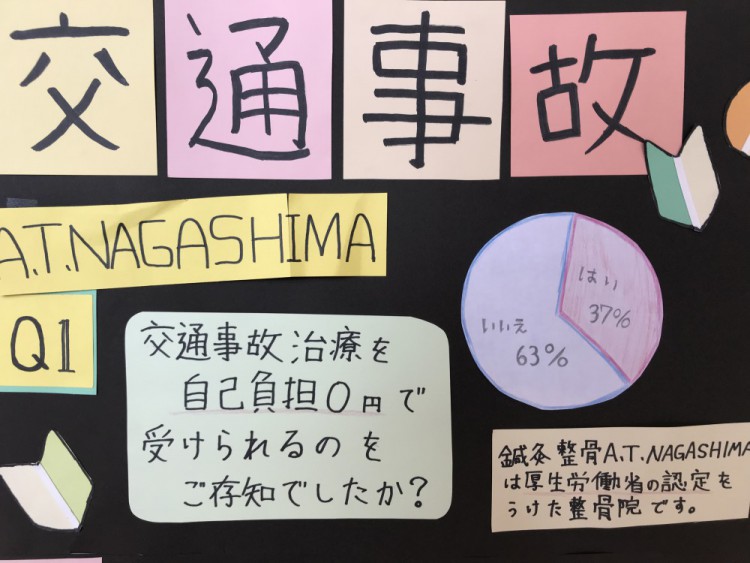 交通事故
A.T.NAGASHIMA
Q1
交通事故治療を
自己負担0円で
受けられるのを
ご存知でしたか?
はい
37%
いいえ
63%
鍼灸整骨A.T.NAGASHIMA
は厚生労働省の認定を
うけた整骨院です。